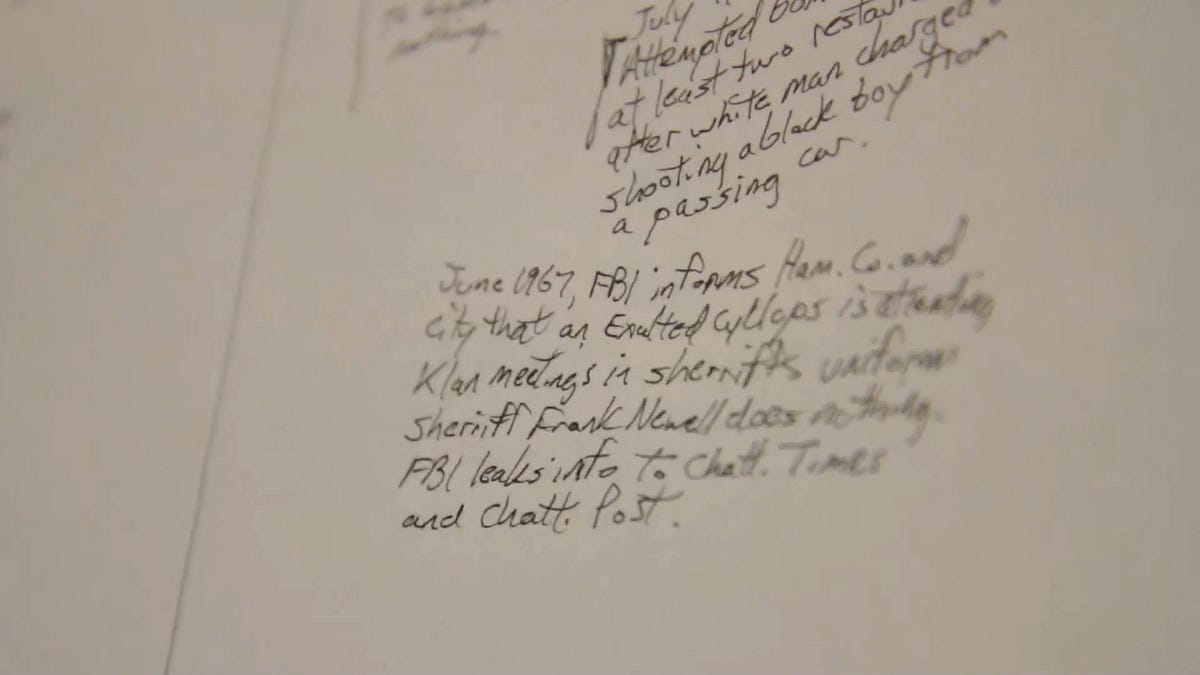 nothing.
July
Attempted
at least two
after white man charged
shooting a black boy from
a passing car.
June 1967, FBI informs Ham. Co. and
city that an Exulted Cyllops is attending
Klan meetings in sherriffs uniform
Sherriff Frank Newell does nothing.
FBI leaks info to Chatt. Times
and Chatt. Post.